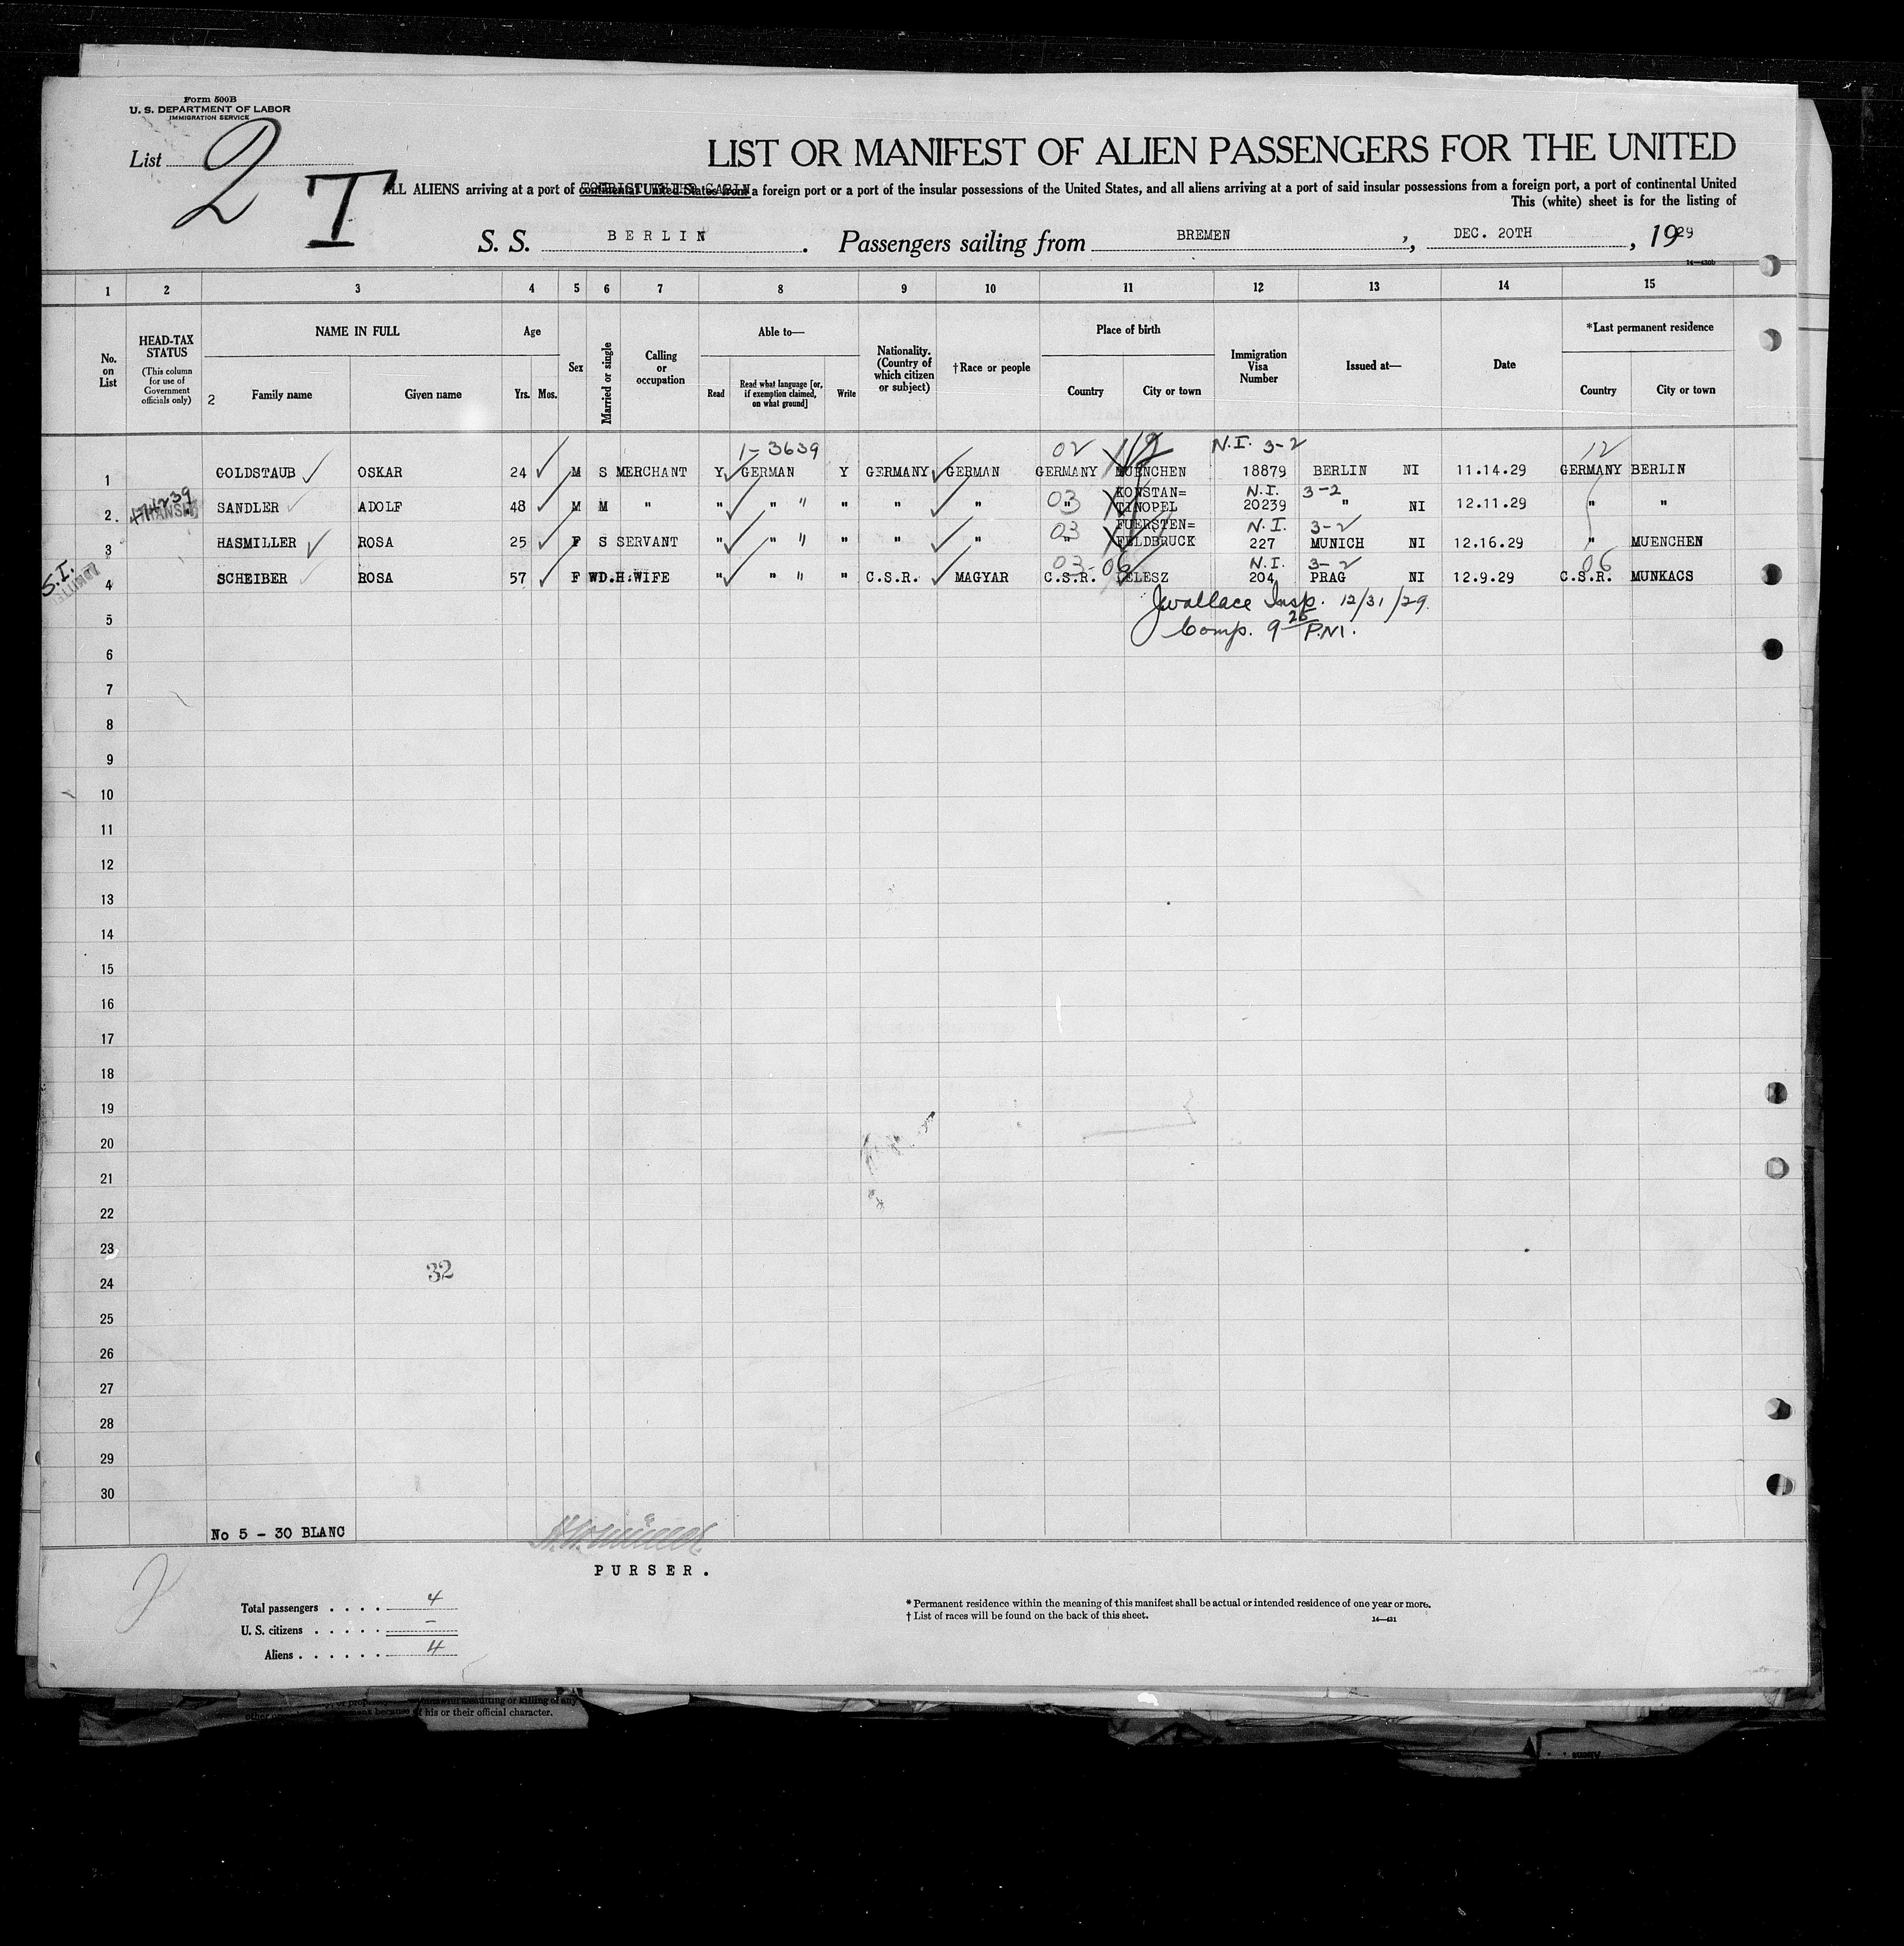 Form 500B
U. S. DEPARTMENT OF LABOR
IMMIGRATION SERVICE
List 2
T
LIST OR MANIFEST OF ALIEN PASSENGERS FOR THE UNITED
ALL ALIENS arriving at a port of continental United States from a foreign port or a port of the insular possessions of the United States, and all aliens arriving at a port of said insular possessions from a foreign port, a port of continental United
This (white) sheet is for the listing of
S. S. BERLIN. Passengers sailing from BREMEN, DEC. 20TH, 1929
14—430b
1 2 3 4 5 6 7 8 9 10 11 12 13 14 15
No. on List
HEAD-TAX STATUS (This column for use of Government officials only)
NAME IN FULL
2 Family name Given name
Age Yrs. Mos.
Sex
Married or single
Calling or occupation
Able to—
Read Read what language [or, if exemption claimed, on what ground] Write
Nationality. (Country of which citizen or subject)
†Race or people
Place of birth
Country City or town
Immigration Visa Number
Issued at—
Date
*Last permanent residence
Country City or town
1-3639 02 N.I. 3-2 12
1 GOLDSTAUB OSKAR 24 M S MERCHANT Y GERMAN Y GERMANY GERMAN GERMANY MUENCHEN 18879 BERLIN NI 11.14.29 GERMANY BERLIN
KONSTAN= N.I. 3-2
2 SANDLER ADOLF 48 M M " " " " " " " 03 " TINOPEL 20239 " NI 12.11.29 " "
FUERSTEN= N.I. 3-2
3 HASMILLER ROSA 25 F S SERVANT " " " " " " 03 " FELDBRUCK 227 MUNICH NI 12.16.29 " MUENCHEN
03-06 N.I. 3-2 06
S.I.
4 SCHEIBER ROSA 57 F WD. H.WIFE " " " " C.S.R. MAGYAR C.S.R. LELESZ 204 PRAG NI 12.9.29 C.S.R. MUNKACS
Jwallace Insp. 12/31/29.
5
Comp. 9 25 P.M.
6
7
8
9
10
11
12
13
14
15
16
17
18
19
20
21
22
23
32
24
25
26
27
28
29
30
No 5 - 30 BLANC
PURSER.
Total passengers . . . . 4
U. S. citizens . . . . . –
Aliens . . . . . . 4
* Permanent residence within the meaning of this manifest shall be actual or intended residence of one year or more.
† List of races will be found on the back of this sheet.
14—431
his or their official character.